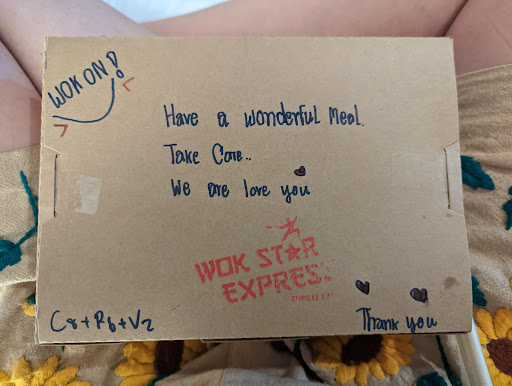 WOK ON!
Have a wonderful Meal.
Take Care..
We are love you
WOK STAR
EXPRESS
C8+R6+V2
Thank you